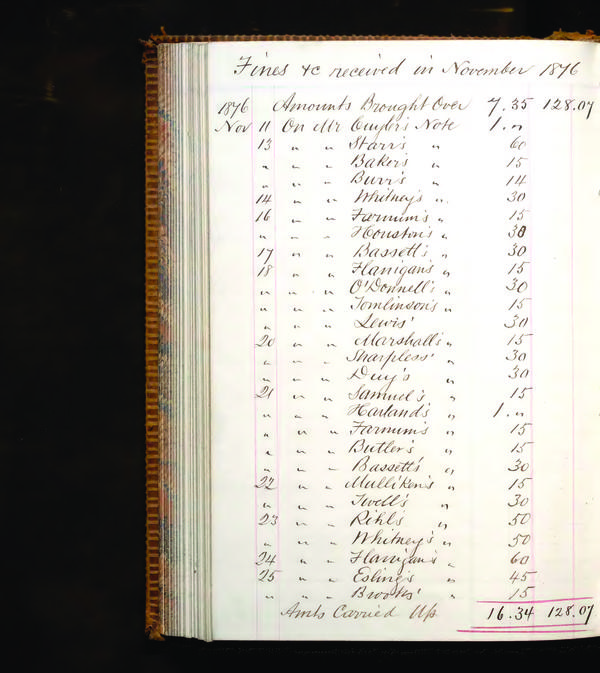 Fines &c received in November 1876
1876 Amounts Brought Over 7.35 128.07
Nov 11 On Mr Cuyler's Note 1. "
13 " " Starr's " 60
" " " Baker's " 15
" " " Burr's " 14
14 " " Whitney's " 30
16 " " Farnum's " 15
" " " Houston's " 30
17 " " Bassett's " 30
18 " " Flanigan's " 15
" " " O'Donnell's " 30
" " " Tomlinson's " 15
" " " Lewis' 30
20 " " Marshall's " 15
" " " Sharpless' " 30
" " " Duy's " 30
21 " " Samuel's " 15
" " " Harland's " 1. "
" " " Farnum's " 15
" " " Butler's " 15
" " " Bassett's " 30
22 " " Mulliken's " 15
" " " Twell's " 30
23 " " Rihl's " 50
" " " Whitney's " 50
24 " " Flanigan's " 60
25 " " Esling's " 45
" " " Brooks' " 15
Amts Carried Up 16.34 128.07